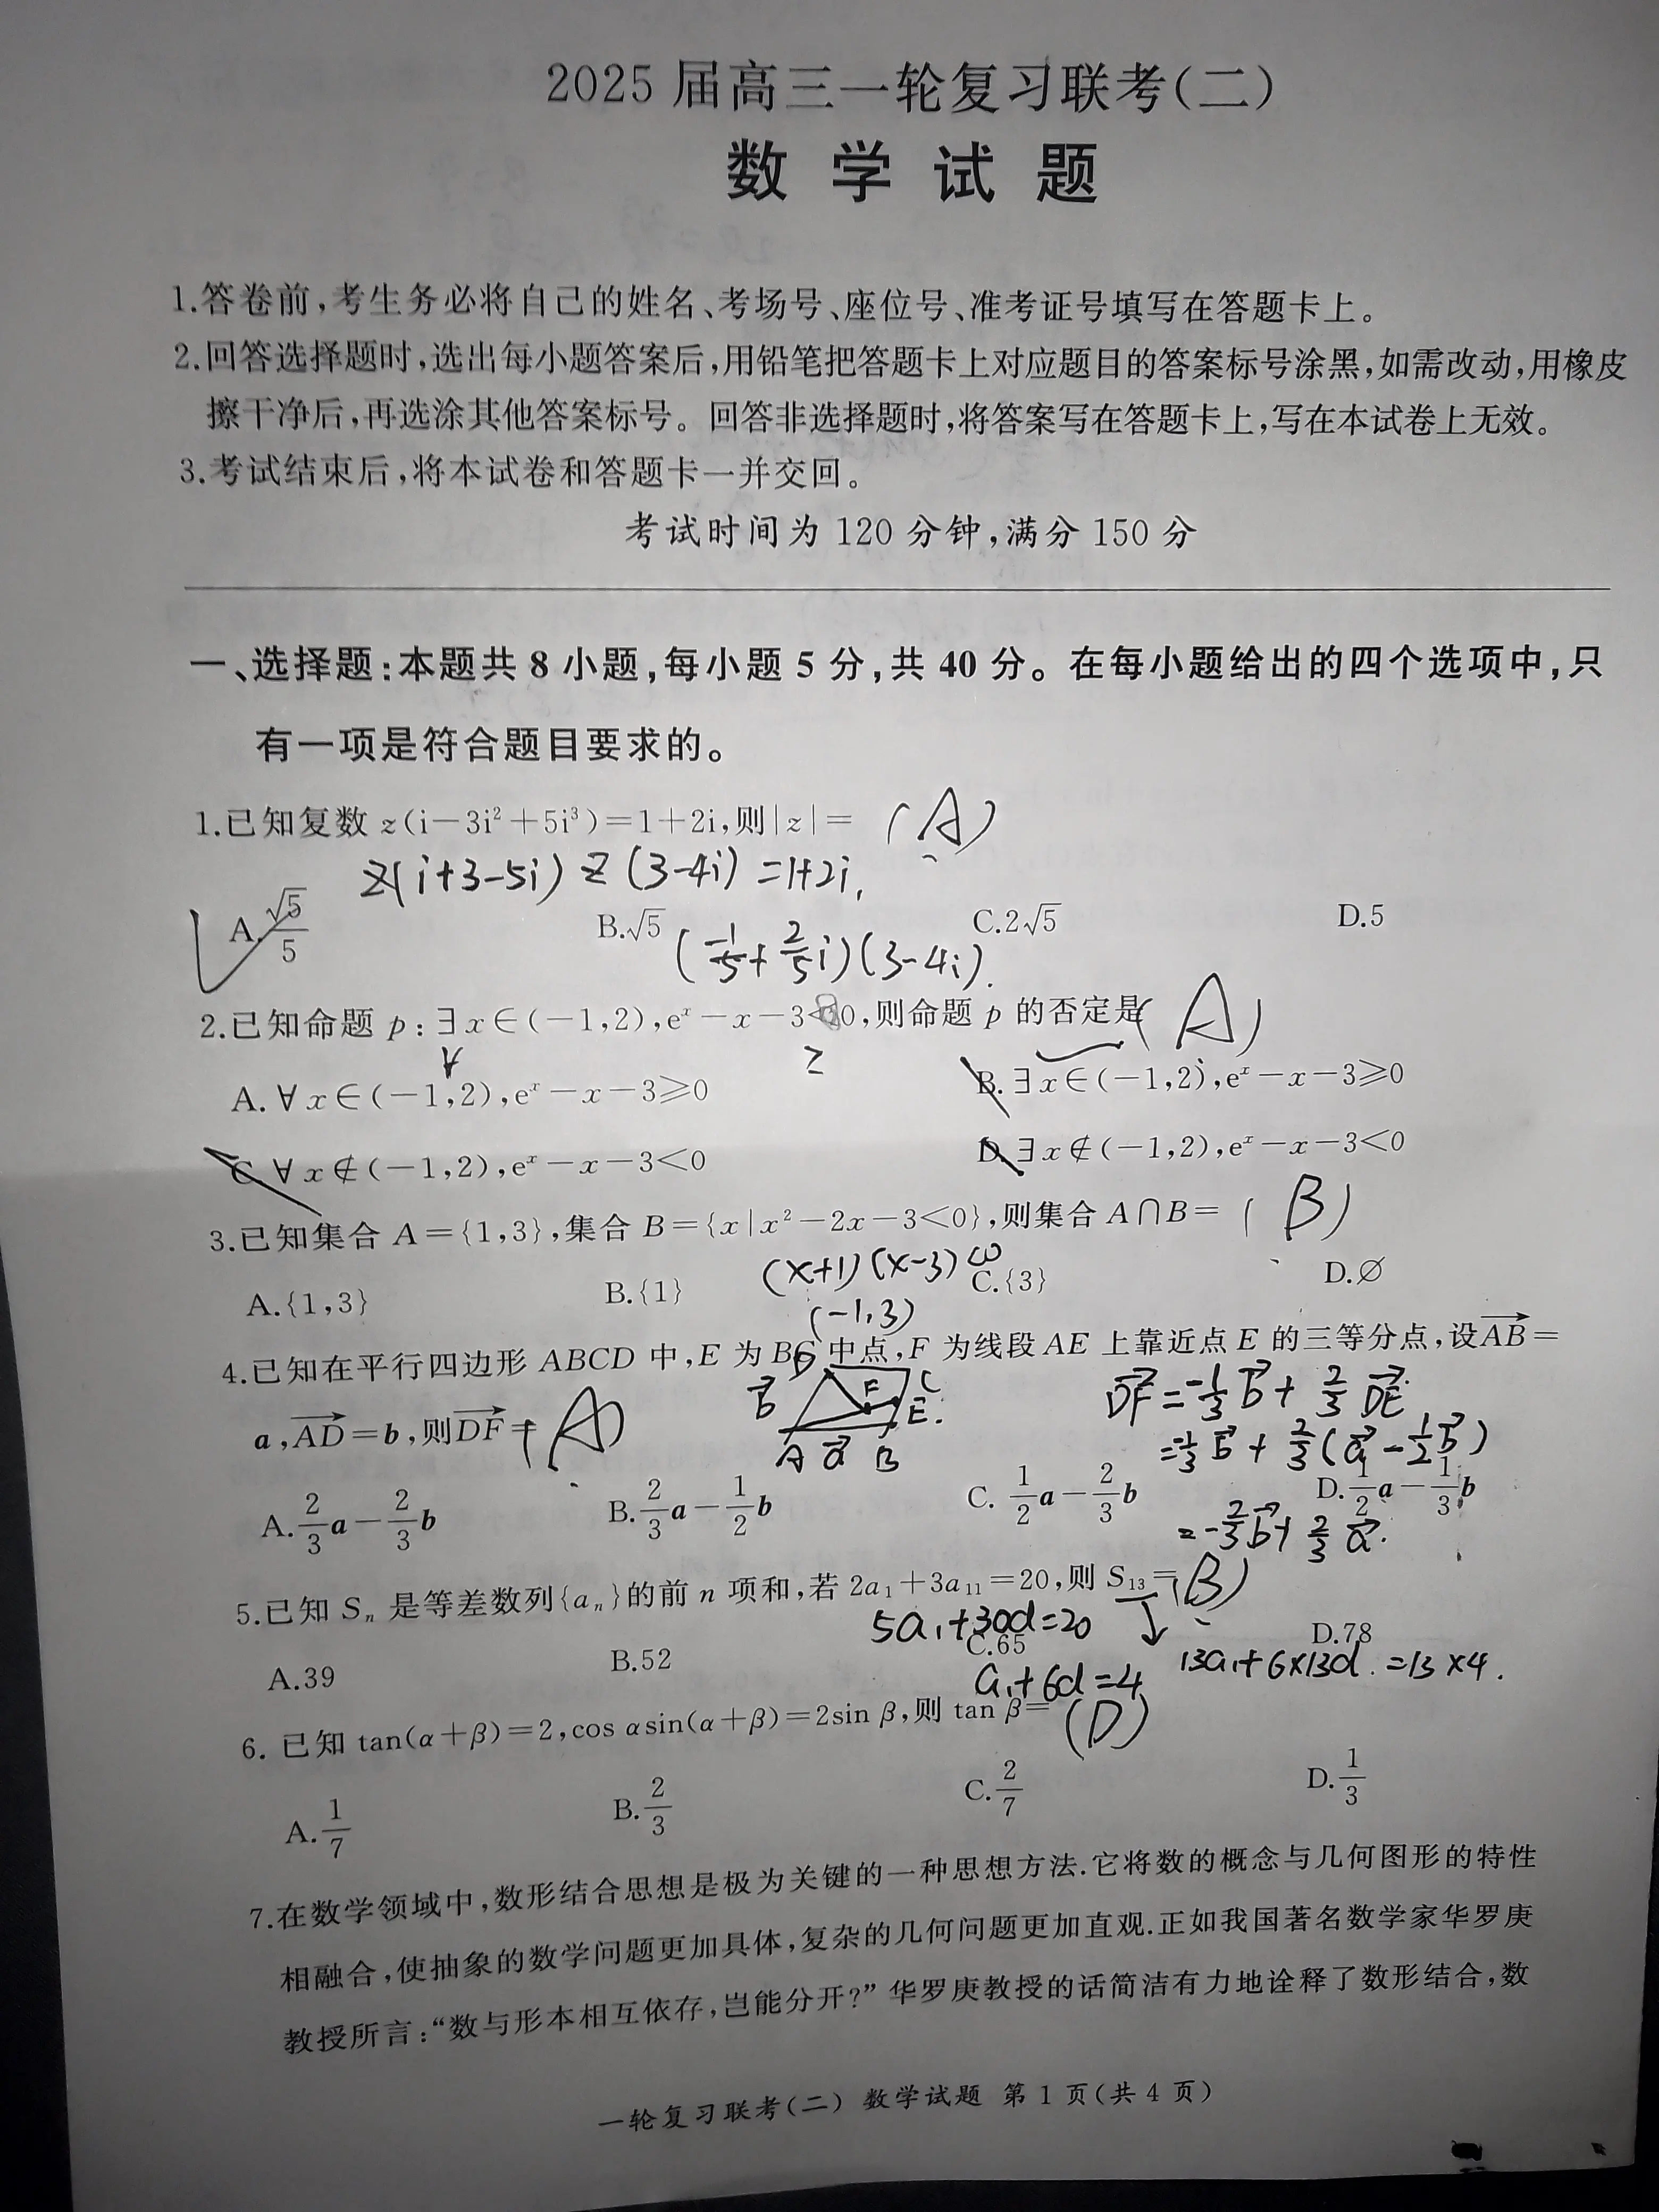 2025 届高三一轮复习联考(二)
数 学 试 题
1.答卷前,考生务必将自己的姓名、考场号、座位号、准考证号填写在答题卡上。
2.回答选择题时,选出每小题答案后,用铅笔把答题卡上对应题目的答案标号涂黑,如需改动,用橡皮
擦干净后,再选涂其他答案标号。回答非选择题时,将答案写在答题卡上,写在本试卷上无效。
3.考试结束后,将本试卷和答题卡一并交回。
考试时间为 120 分钟,满分 150 分
一、选择题:本题共 8 小题,每小题 5 分,共 40 分。在每小题给出的四个选项中,只
有一项是符合题目要求的。
1.已知复数 z(i-3i²+5i³)=1+2i,则|z|= (A)
z(i+3-5i) z(3-4i)=1+2i,
A.√5/5 B.√5 C.2√5 D.5
(-1/5+2/5i)(3-4i).
2.已知命题 p:∃x∈(-1,2),eˣ-x-3<0,则命题 p 的否定是(A)
∀ ≥
A.∀x∈(-1,2),eˣ-x-3≥0 B.∃x∈(-1,2),eˣ-x-3≥0
C.∀x∉(-1,2),eˣ-x-3<0 D.∃x∉(-1,2),eˣ-x-3<0
3.已知集合 A={1,3},集合 B={x|x²-2x-3<0},则集合 A∩B= (B)
(x+1)(x-3)<0
A.{1,3} B.{1} C.{3} D.∅
(-1,3)
4.已知在平行四边形 ABCD 中,E 为 BC 中点,F 为线段 AE 上靠近点 E 的三等分点,设AB→=
a,AD→=b,则DF→= (A)
b→ D F C E. A a→ B
DF→=-1/3b→+2/3DE→.
=-1/3b→+2/3(a→-1/2b→)
A.2/3a-2/3b B.2/3a-1/2b C.1/2a-2/3b D.1/2a-1/3b
=-2/3b→+2/3a→.
5.已知 Sₙ 是等差数列{aₙ}的前 n 项和,若 2a₁+3a₁₁=20,则 S₁₃= (B)
5a₁+30d=20 ↓
A.39 B.52 C.65 D.78
a₁+6d=4 13a₁+6×13d.=13×4.
6. 已知 tan(α+β)=2,cos αsin(α+β)=2sin β,则 tan β= (D)
A.1/7 B.2/3 C.2/7 D.1/3
7.在数学领域中,数形结合思想是极为关键的一种思想方法.它将数的概念与几何图形的特性
相融合,使抽象的数学问题更加具体,复杂的几何问题更加直观.正如我国著名数学家华罗庚
教授所言:“数与形本相互依存,岂能分开?”华罗庚教授的话简洁有力地诠释了数形结合,数
一轮复习联考(二) 数学试题 第 1 页(共 4 页)